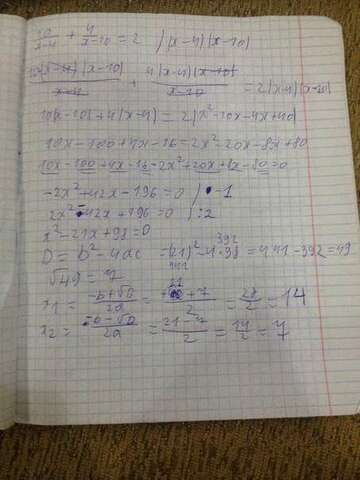 10/(x-4) + 4/(x-10) = 2 /(x-4)(x-10)
10(x-4)(x-10)/(x-4) + 4(x-4)(x-10)/(x-10) = 2(x-4)(x-10)
10(x-10)+4(x-4)=2(x²-10x-4x+40)
10x-100+4x-16=2x²-20x-8x+80
10x-100+4x-16-2x²+20x+8x-80=0
-2x²+42x-196=0 /·-1
2x²-42x+196=0 /:2
x²-21x+98=0
D=b²-4ac =(-21)²-4·98=441-392=49
392
441
√49=7
x1=(-b+√D)/2a=(21+7)/2=28/2=14
x2=(-b-√D)/2a=(21-7)/2=14/2=7